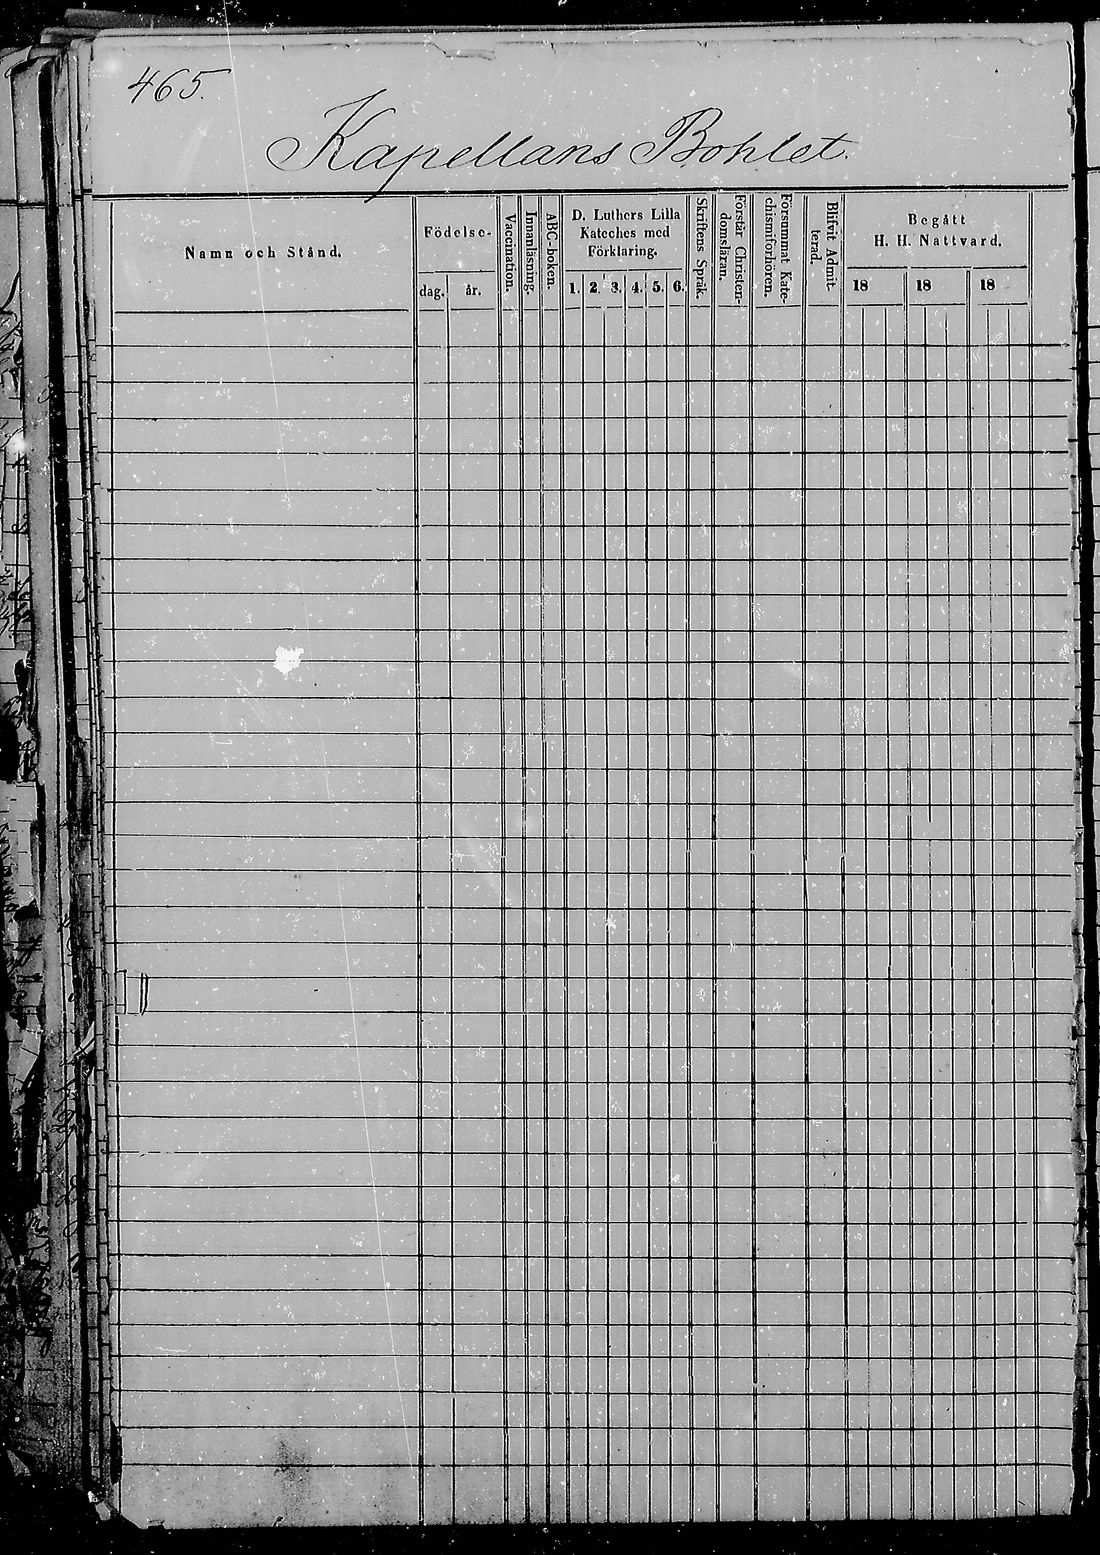 465.
Kapellans Bohlet.
Namn och Stånd.
Födelse-
dag.
år.
Vaccination.
Innanläsning.
ABC-boken.
D. Luthers Lilla
Kateches med
Förklaring.
1. 2. 3. 4. 5. 6.
Skriftens Språk.
Förstår Christen-
domsläran.
Försummat Kate-
chismiförhören.
Blifvit Admit-
terad.
Begått
H. H. Nattvard.
18 18 18